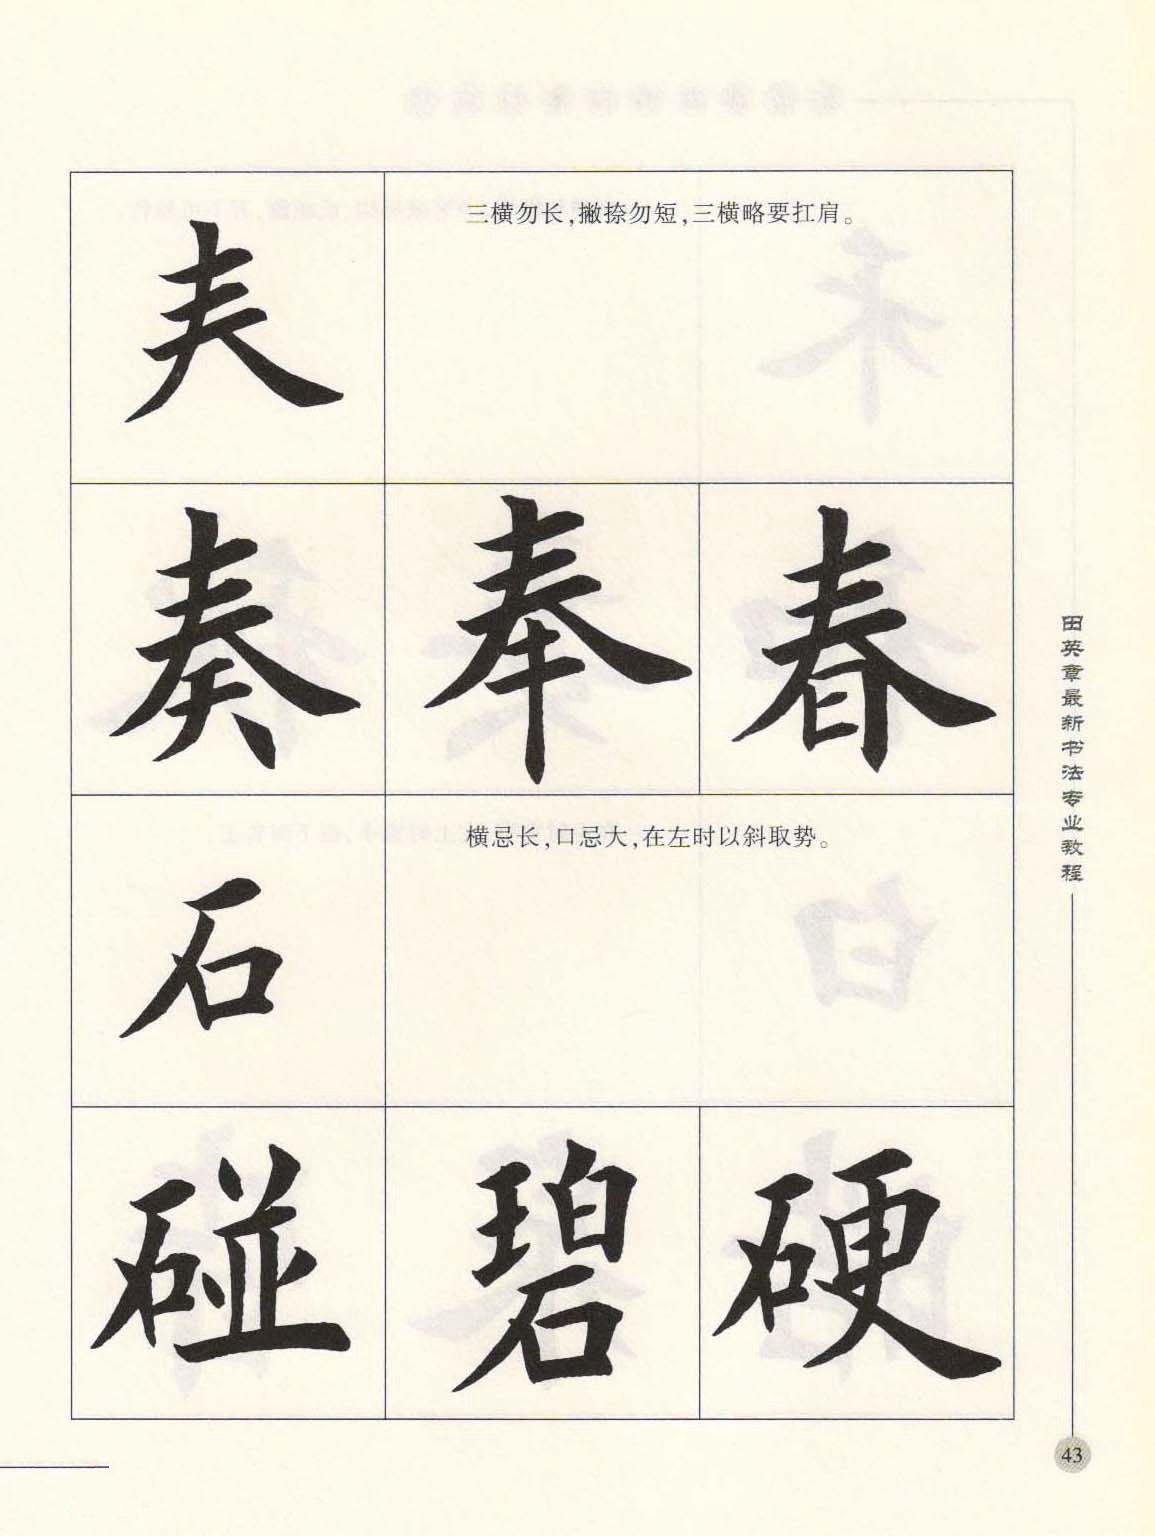 三横勿长，撇捺勿短，三横略要扛肩。
𡗗
奏 奉 春
横忌长，口忌大，在左时以斜取势。
石
碰 碧 硬
田英章最新书法专业教程
43